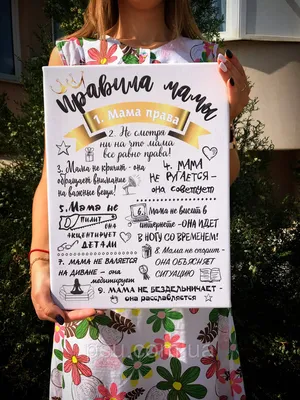 правила мамы
1. Мама права
2. Не смотря
ни на что мама
все равно права!
3. Мама не кричит - она
обращает внимание
на важные вещи!
4. МАМА
НЕ РУГАЕТСЯ -
она советует
5. Мама не
ПИЛИТ
ОНА
АКЦЕНТИРУЕТ
ДЕТАЛИ
6. Мама не висит в
интернете - ОНА ИДЕТ
В НОГУ СО ВРЕМЕНЕМ!
7. МАМА НЕ ВАЛЯЕТСЯ
НА ДИВАНЕ - она
медитирует
8. Мама не спорит -
ОНА ОБЪЯСНЯЕТ
СИТУАЦИЮ
9. МАМА НЕ БЕЗДЕЛЬНИЧАЕТ -
она РАССЛАБЛЯЕТСЯ